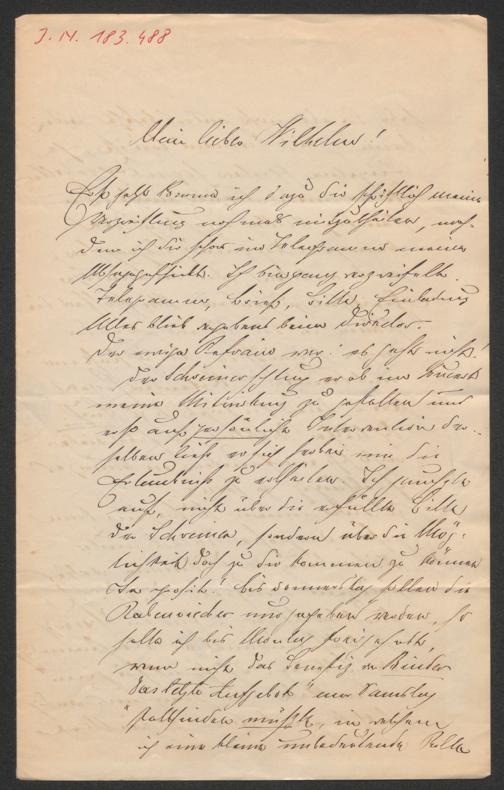 J. N. 183.488
Mein lieber Wilhelm!
Erst jetzt komme ich dazu dir schriftlich meine
Verzweiflung nochmals mitzutheilen, nach-
dem ich dir schon im Telegramme meine
Absage schickte. Ich bin ganz verzweifelt.
Telegramme, Briefe, Bitte, Einladung
Alles blieb vergebens beim Direktor.
Der ewige Refrain war: es geht nicht!
Der Schreiner schlug er ab im Concert
meine Mitwirkung zu gestatten und
erst auf persönliche Intervention der-
selben ließ er sich herbei mir die
Erlaubniß zu ertheilen. Ich jauchzte
auf, nicht über die erfüllte Bitte
der Schreiner, sondern über die Mög-
lichkeit doch zu dir kommen zu können
Bis Donnerstag sollen die
Rabenvieder ausgegeben werden, so
hätte ich bis Montag freigehabt,
wenn nicht das Benefiz der Binder
"Das letzte Aufgebot" am Samstag
stattfinden müßte, in welchem
ich eine kleine unbedeutende Rolle